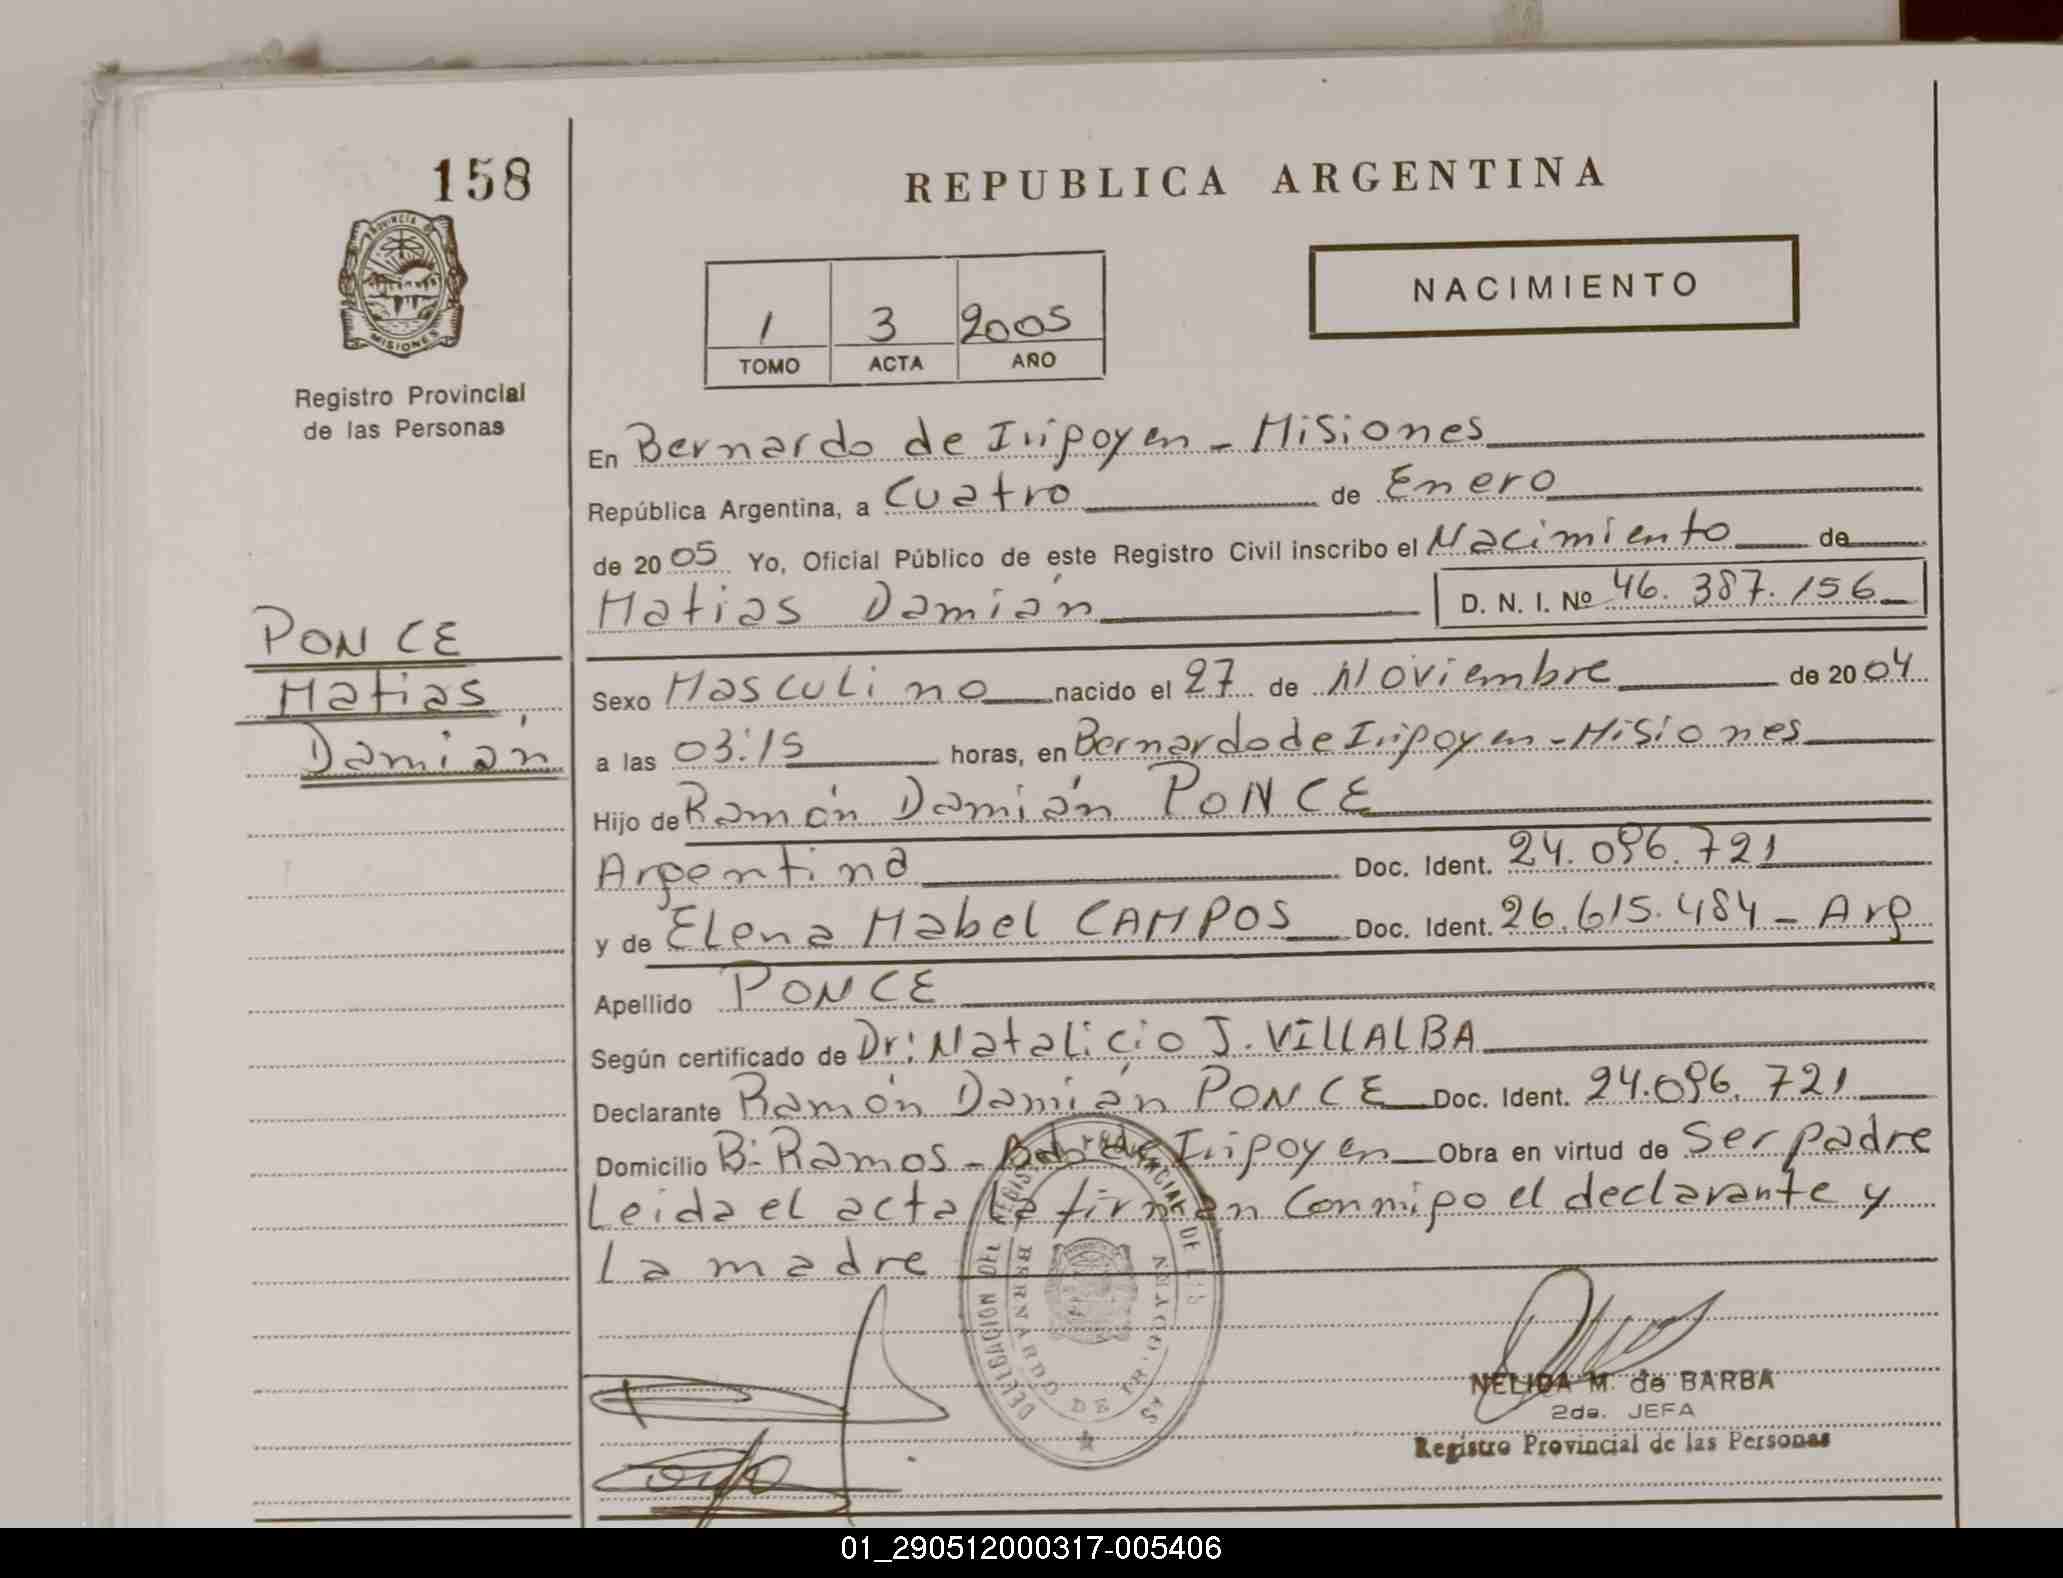 158
PROVINCIA DE
MISIONES
Registro Provincial
de las Personas
PONCE
Matias
Damián
REPUBLICA ARGENTINA
1 3 2005
TOMO ACTA AÑO
NACIMIENTO
En Bernardo de Irigoyen - Misiones
República Argentina, a Cuatro de Enero
de 2005 Yo, Oficial Público de este Registro Civil inscribo el Nacimiento de
Matias Damián D. N. I. Nº 46.387.156
Sexo Masculino nacido el 27 de Noviembre de 2004
a las 03:15 horas, en Bernardo de Irigoyen - Misiones
Hijo de Ramón Damián PONCE
Argentina Doc. Ident. 24.096.721
y de Elena Mabel CAMPOS Doc. Ident. 26.615.484 - Arg
Apellido PONCE
Según certificado de Dr: Natalicio J. VILLALBA
Declarante Ramón Damián PONCE Doc. Ident. 24.096.721
Domicilio B: Ramos - Bdo de Irigoyen Obra en virtud de Ser padre
Leida el acta la firman conmigo el declarante y
La madre
DELEGACION DEL REGISTRO PROVINCIAL DE LAS
BERNARDO DE IRIGOYEN
NELIDA M. de BARBA
2da. JEFA
Registro Provincial de las Personas
01_290512000317-005406